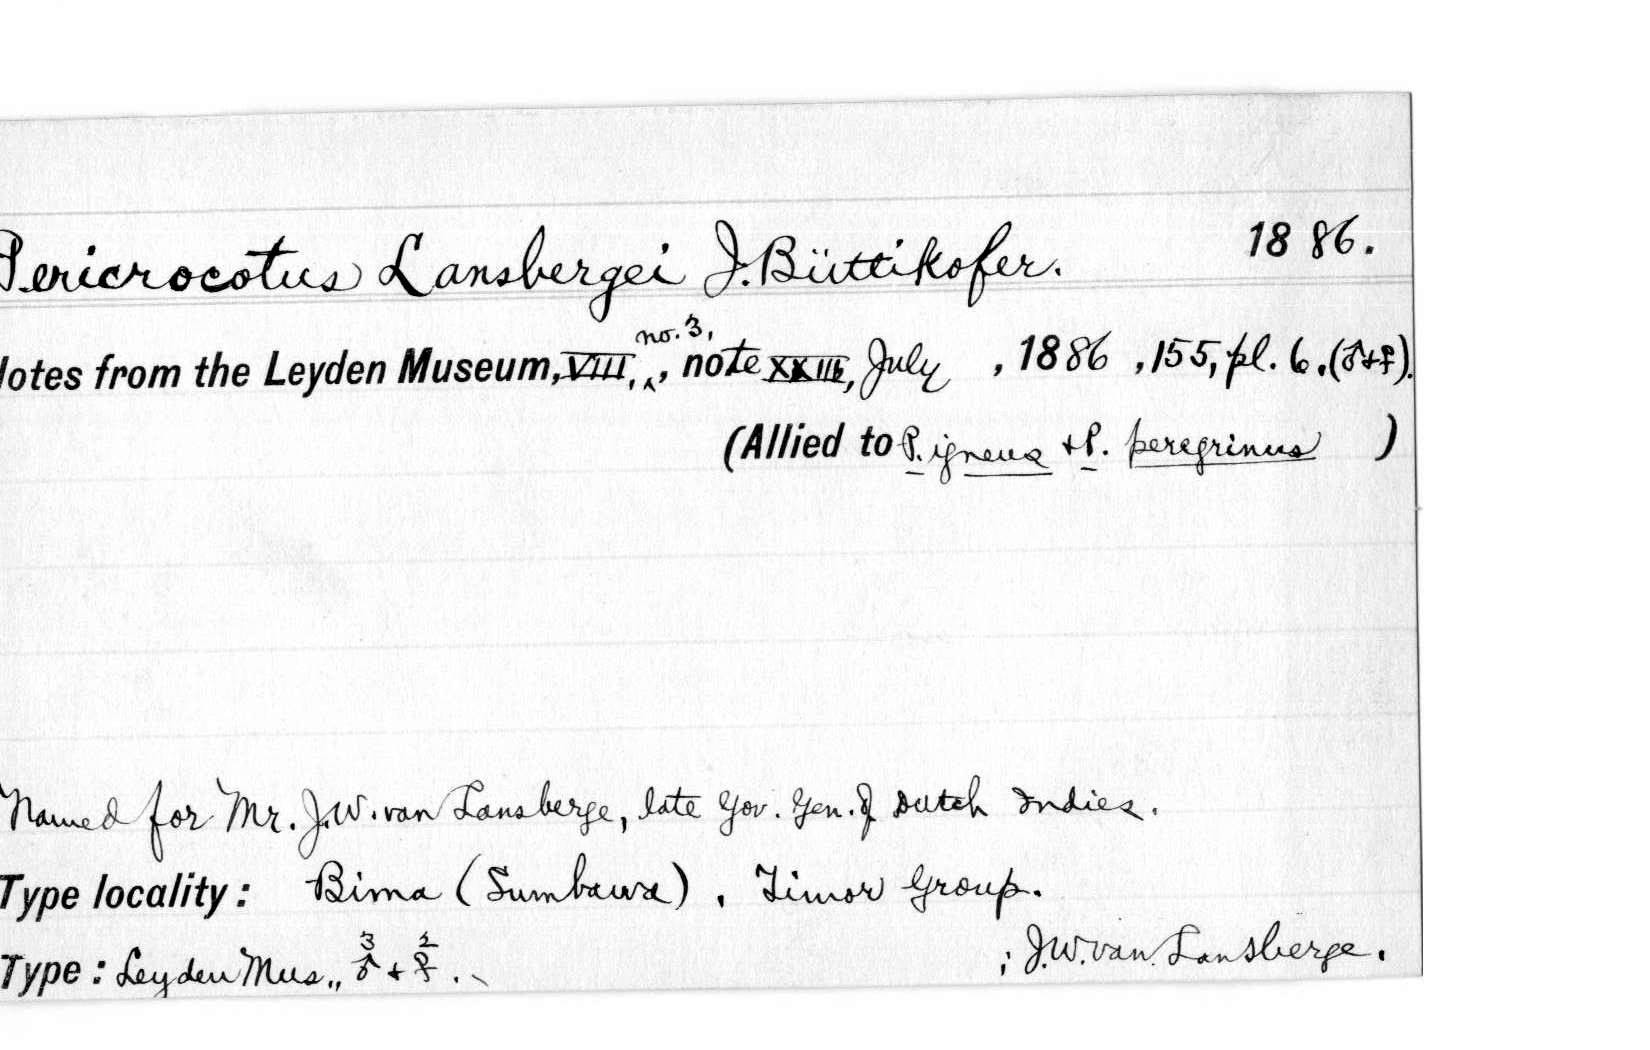 Pericrocotus Lansbergei J. Büttikofer. 1886.
Notes from the Leyden Museum, VIII, no. 3, , note XXIII, July , 1886 , 155, pl. 6, (♂+♀).
(Allied to P. igneus + P. peregrinus )
Named for Mr. J.W. van Lansberge, late Gov. Gen. of Dutch Indies.
Type locality: Bima (Sumbawa) , Timor Group.
Type: Leyden Mus., 3♂ + 2♀. ; J.W. van Lansberge.